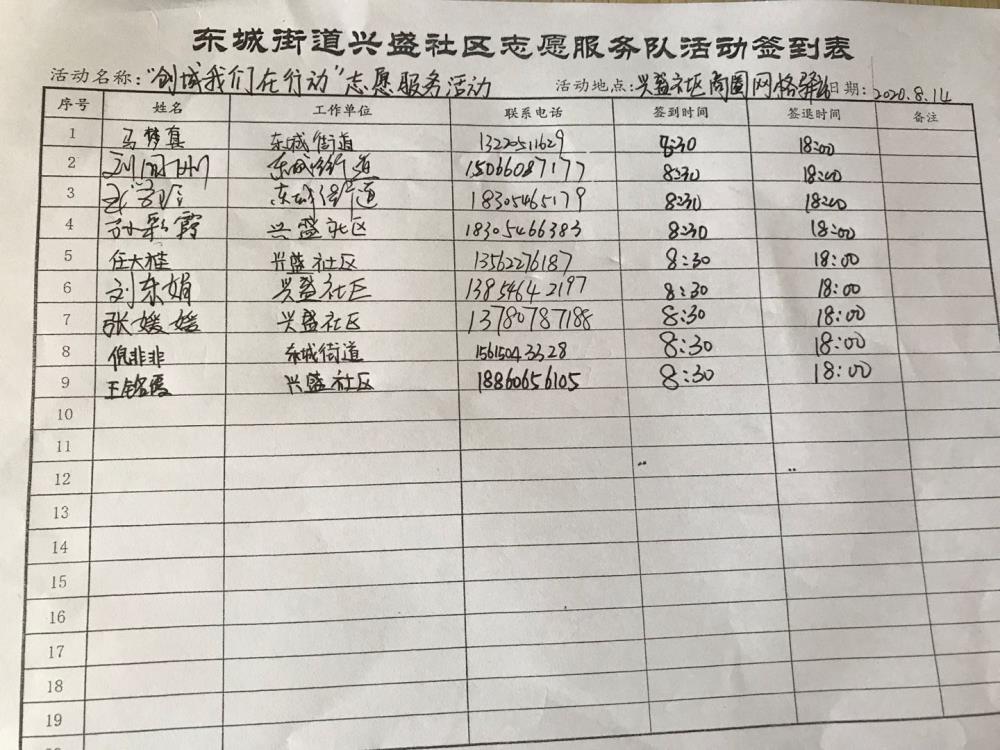 东城街道兴盛社区志愿服务队活动签到表
活动名称："创城我们在行动"志愿服务活动 活动地点：兴盛社区商圈网格驿站 日期：2020.8.14
序号 姓名 工作单位 联系电话 签到时间 签退时间 备注
1 马梦真 东城街道 13220511629 8:30 18:00
2 东城街道 15066087177 8:30 18:00
3 东城街道 18305465179 8:30 18:00
4 孙彩霞 兴盛社区 18305466383 8:30 18:00
5 任大雅 兴盛社区 13562276187 8:30 18:00
6 刘东娟 兴盛社区 13854642197 8:30 18:00
7 张媛媛 兴盛社区 13780787188 8:30 18:00
8 倪非非 东城街道 15615043328 8:30 18:00
9 王铭霞 兴盛社区 18860656105 8:30 18:00
10
11
12
13
14
15
16
17
18
19